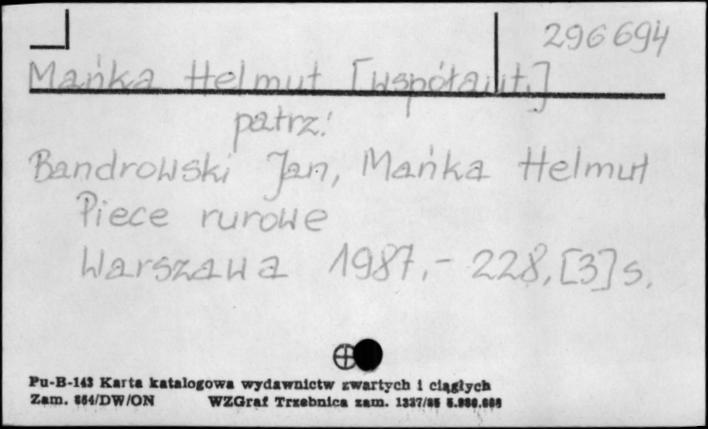 296694
Mańka Helmut [współaut.]
patrz:
Bandrowski Jan, Mańka Helmut
Piece rurowe
Warszawa 1987.- 228,[3]s.
Pu-B-143 Karta katalogowa wydawnictw zwartych i ciągłych
Zam. 864/DW/ON WZGraf Trzebnica zam.